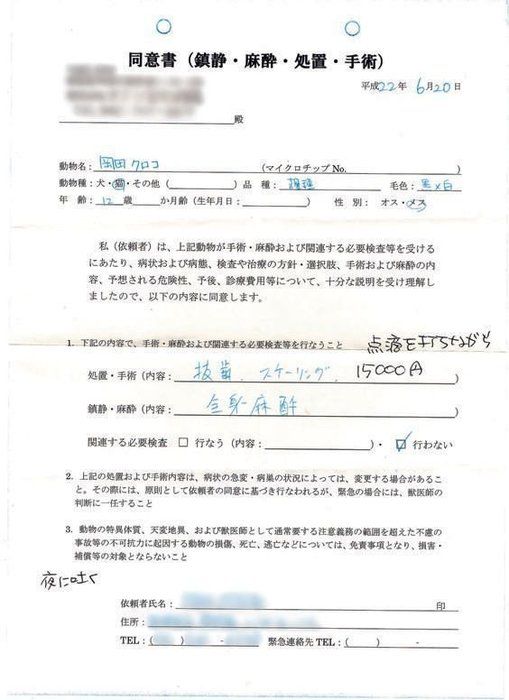 同意書（鎮静・麻酔・処置・手術）
平成22年 6月20日
殿
動物名：岡田クロコ （マイクロチップ No.
動物種：犬・猫・その他（ ）品 種： 雑種 毛色：黒×白
年 齢：12 歳 か月齢（生年月日： ） 性 別： オス・メス
私（依頼者）は、上記動物が手術・麻酔および関連する必要検査等を受ける
にあたり、病状および病態、検査や治療の方針・選択肢、手術および麻酔の内
容、予想される危険性、予後、診療費用等について、十分な説明を受け理解し
ましたので、以下の内容に同意します。
1. 下記の内容で、手術・麻酔および関連する必要検査等を行なうこと 点滴を打ちながら
処置・手術（内容： 抜歯、スケーリング、 15000円 ）
鎮静・麻酔（内容： 全身麻酔 ）
関連する必要検査 □ 行なう（内容： ）・ ☑ 行わない
2. 上記の処置および手術内容は、病状の急変・病巣の状況によっては、変更する場合があるこ
と。その際には、原則として依頼者の同意に基づき行なわれるが、緊急の場合には、獣医師の
判断に一任すること
3. 動物の特異体質、天変地異、および獣医師として通常要する注意義務の範囲を超えた不慮の
事故等の不可抗力に起因する動物の損傷、死亡、逃亡などについては、免責事項となり、損害・
補償等の対象とならないこと
夜に吐く
依頼者氏名： 印
住所：
TEL：( ) - 緊急連絡先 TEL：( ) -